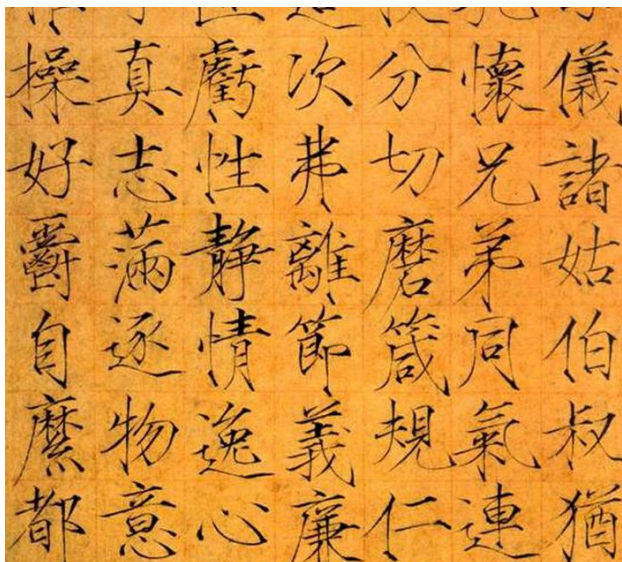 儀諸姑伯叔猶
懷兄弟同氣連
分切磨箴規仁
次弗離節義廉
虧性靜情逸心
真志滿逐物意
操好爵自縻都